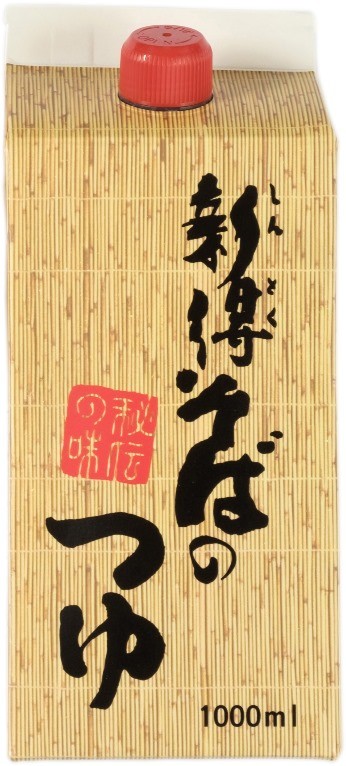 新得そばの
しんとく
つゆ
秘伝
の味
1000ml